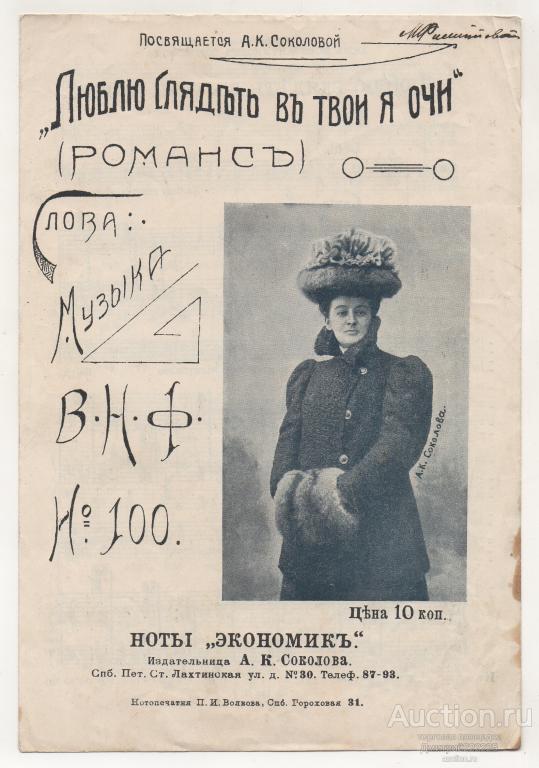 Посвящается А.К.Соколовой
„Люблю глядѣть въ твои я очи“
(Романсъ)
Слова:
Музыка
В.Н.Ф.
№ 100.
А.К. Соколова.
Цѣна 10 коп.
НОТЫ „ЭКОНОМИКЪ.“
Издательница А. К. Соколова.
Спб. Пет. Ст. Лахтинская ул. д. №30. Телеф. 87-93.
Нотопечатня П. И. Вовкова, Спб. Гороховая 31.
Auction.ru
торговая площадка
auction.ru